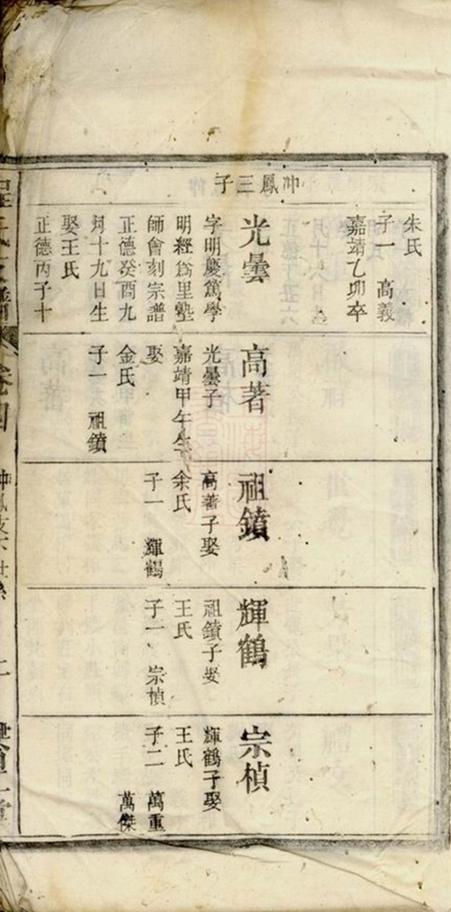 朱氏
子一 高義
嘉靖乙卯卒
冲鳳三子
光曇
字明慶篤學
明經爲里塾
師會刻宗譜
正德癸酉九
月十九日生
娶王氏
正德丙子十
高著
光曇子
嘉靖甲午生
娶
金氏
子一 祖鐼
祖鐼
高著子娶
余氏
子一 輝鶴
輝鶴
祖鐼子娶
王氏
子一 宗楨
宗楨
輝鶴子娶
王氏
子二 萬重
萬傑